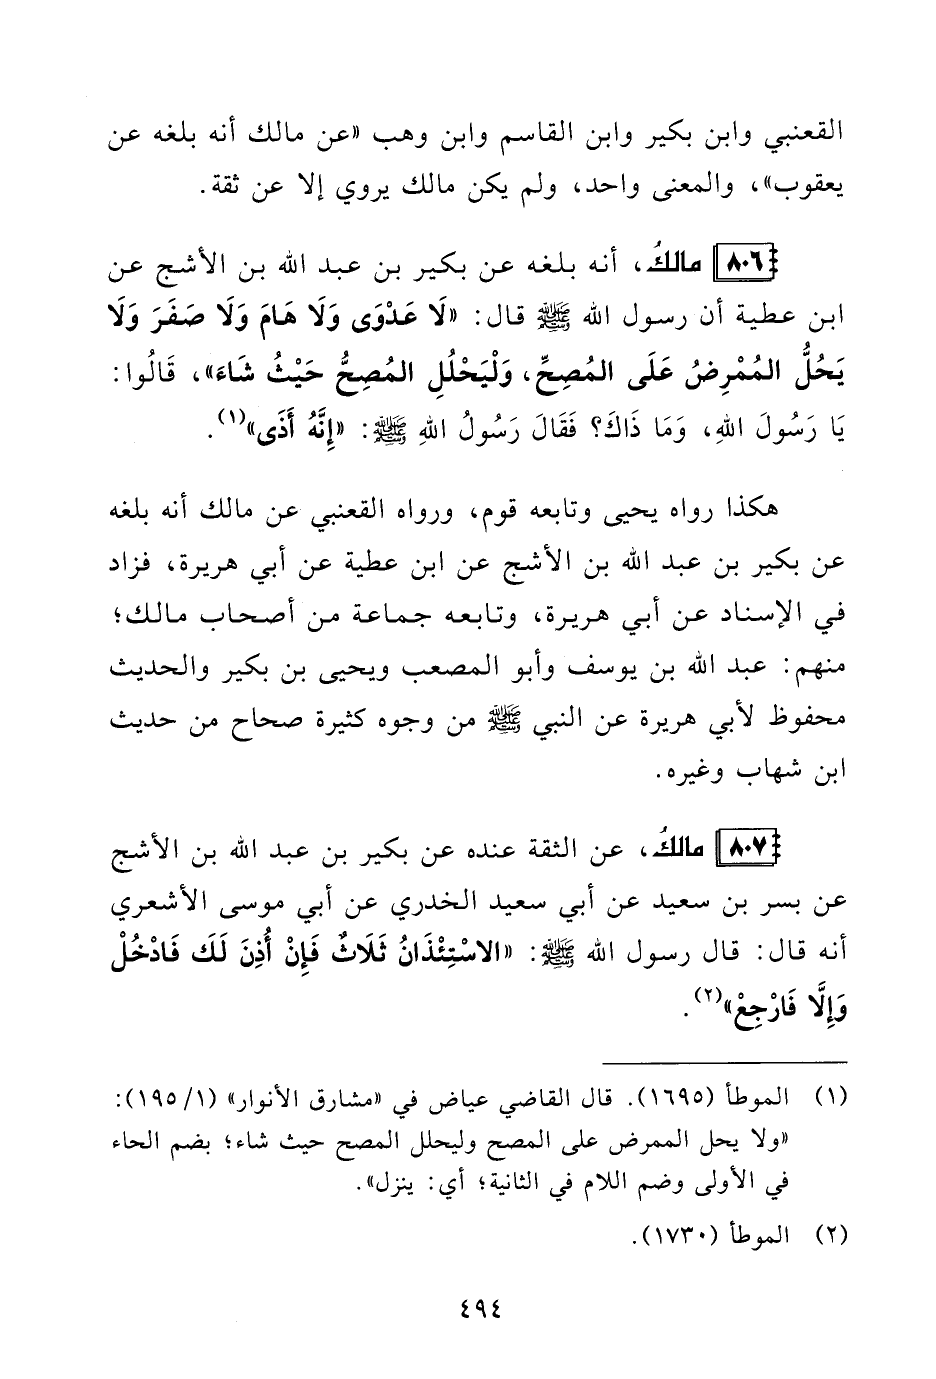 القعنبي وابن بكير وابن القاسم وابن وهب «عن مالك أنه بلغه عن
يعقوب»، والمعنى واحد، ولم يكن مالك يروي إلا عن ثقة.
٨٠٦ مالكُ، أنه بلغه عن بكير بن عبد الله بن الأشج عن
ابن عطية أن رسول الله ﷺ قال: «لَا عَدْوَى وَلَا هَامَ وَلَا صَفَرَ وَلَا
يَحُلُّ المُمْرِضُ عَلَى المُصِحِّ، وَلْيَحْلُلِ المُصِحُّ حَيْثُ شَاءَ»، قَالُوا:
يَا رَسُولَ اللهِ، وَمَا ذَاكَ؟ فَقَالَ رَسُولُ اللهِ ﷺ: «إِنَّهُ أَذَى»(١).
هكذا رواه يحيى وتابعه قوم، ورواه القعنبي عن مالك أنه بلغه
عن بكير بن عبد الله بن الأشج عن ابن عطية عن أبي هريرة، فزاد
في الإسناد عن أبي هريرة، وتابعه جماعة من أصحاب مالك؛
منهم: عبد الله بن يوسف وأبو المصعب ويحيى بن بكير والحديث
محفوظ لأبي هريرة عن النبي ﷺ من وجوه كثيرة صحاح من حديث
ابن شهاب وغيره.
٨٠٧ مالكُ، عن الثقة عنده عن بكير بن عبد الله بن الأشج
عن بسر بن سعيد عن أبي سعيد الخدري عن أبي موسى الأشعري
أنه قال: قال رسول الله ﷺ: «الاسْتِئْذَانُ ثَلَاثٌ فَإِنْ أُذِنَ لَكَ فَادْخُلْ
وَإِلَّا فَارْجِعْ»(٢).
(١) الموطأ (١٦٩٥). قال القاضي عياض في «مشارق الأنوار» (١/ ١٩٥):
«ولا يحل الممرض على المصح وليحلل المصح حيث شاء؛ بضم الحاء
في الأولى وضم اللام في الثانية؛ أي: ينزل».
(٢) الموطأ (١٧٣٠).
٤٩٤